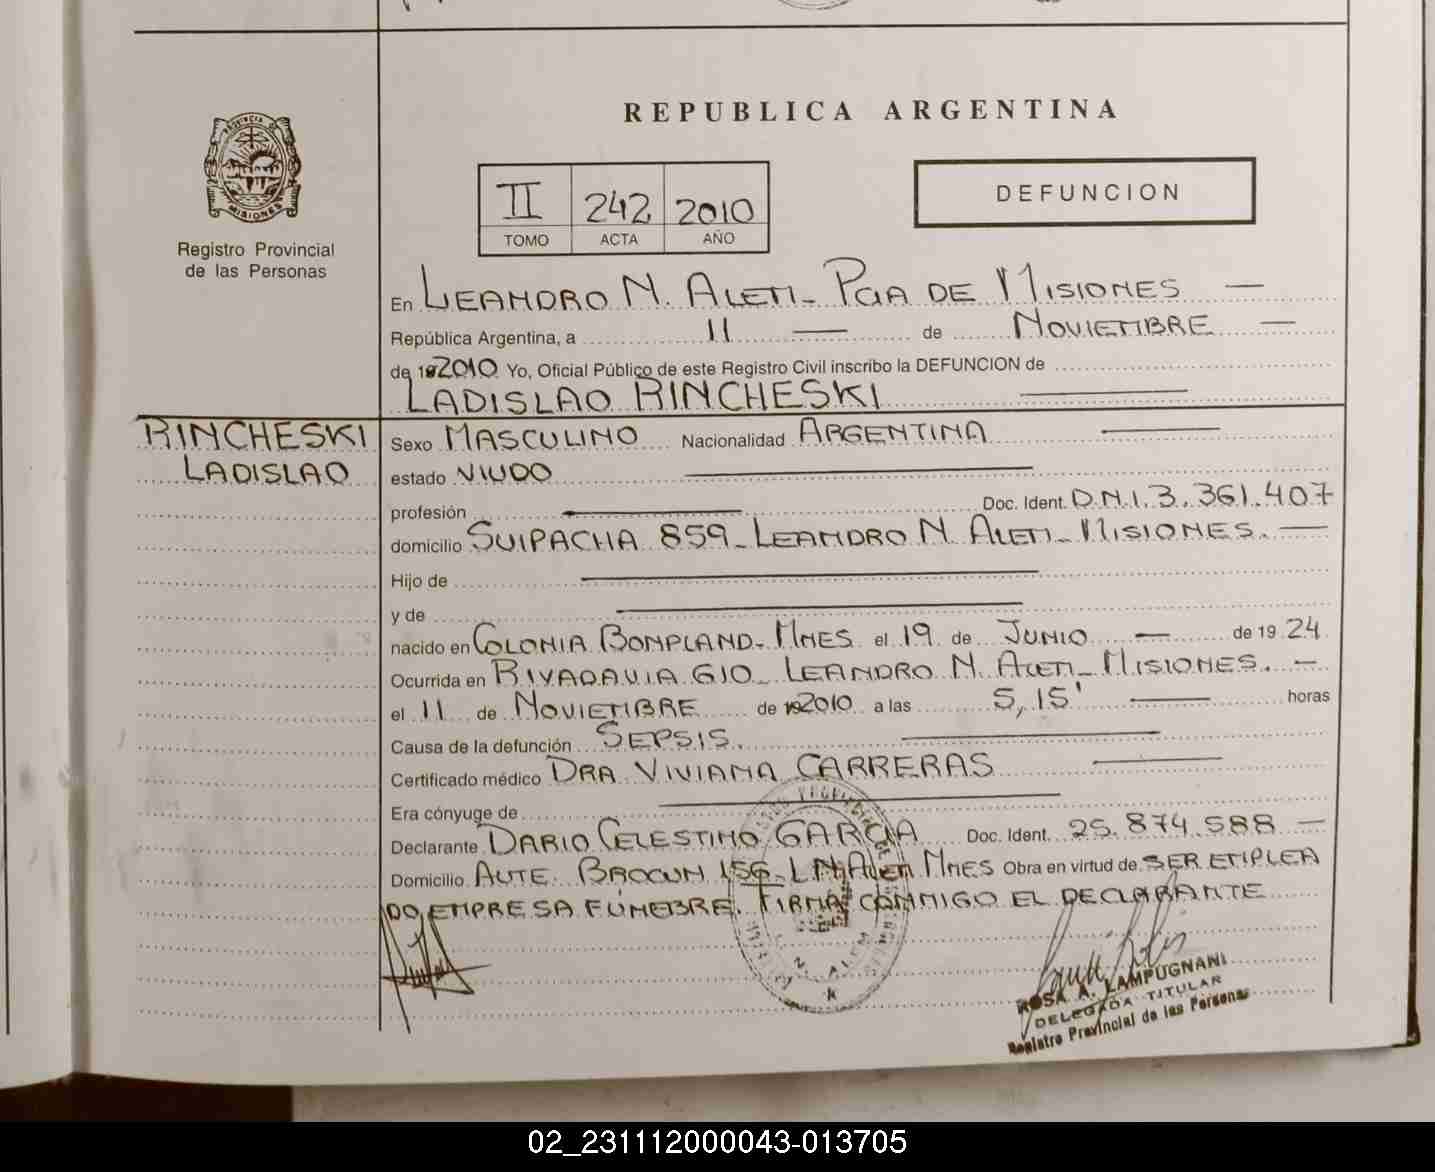 REPUBLICA ARGENTINA
PROVINCIA DE
MISIONES
Registro Provincial
de las Personas
II 242 2010
TOMO ACTA AÑO
DEFUNCION
En LEANDRO N. ALEM - PCIA DE MISIONES —
República Argentina, a 11 — de NOVIEMBRE —
de 192010 Yo, Oficial Público de este Registro Civil inscribo la DEFUNCION de
LADISLAO RINCHESKI
RINCHESKI
LADISLAO
Sexo MASCULINO Nacionalidad ARGENTINA
estado VIUDO
profesión Doc. Ident. D.N.I. 3.361.407
domicilio SUIPACHA 859 - LEANDRO N. ALEM - MISIONES. —
Hijo de
y de
nacido en COLONIA BONPLAND - MNES el 19 de JUNIO — de 19 24
Ocurrida en RIVADAVIA 610 - LEANDRO N. ALEM - MISIONES. —
el 11 de NOVIEMBRE de 192010 a las 5,15' horas
Causa de la defunción SEPSIS.
Certificado médico DRA VIVIANA CARRERAS
Era cónyuge de
Declarante DARIO CELESTINO GARCIA Doc. Ident. 25.874.588 —
Domicilio ALTE. BROWN 156 - L.N. ALEM MNES Obra en virtud de SER EMPLEA
DO EMPRESA FÚNEBRE. FIRMA CONMIGO EL DECLARANTE
L. N. ALEM
ROSA A. LAMPUGNANI
DELEGADA TITULAR
Registro Provincial de las Personas
02_231112000043-013705